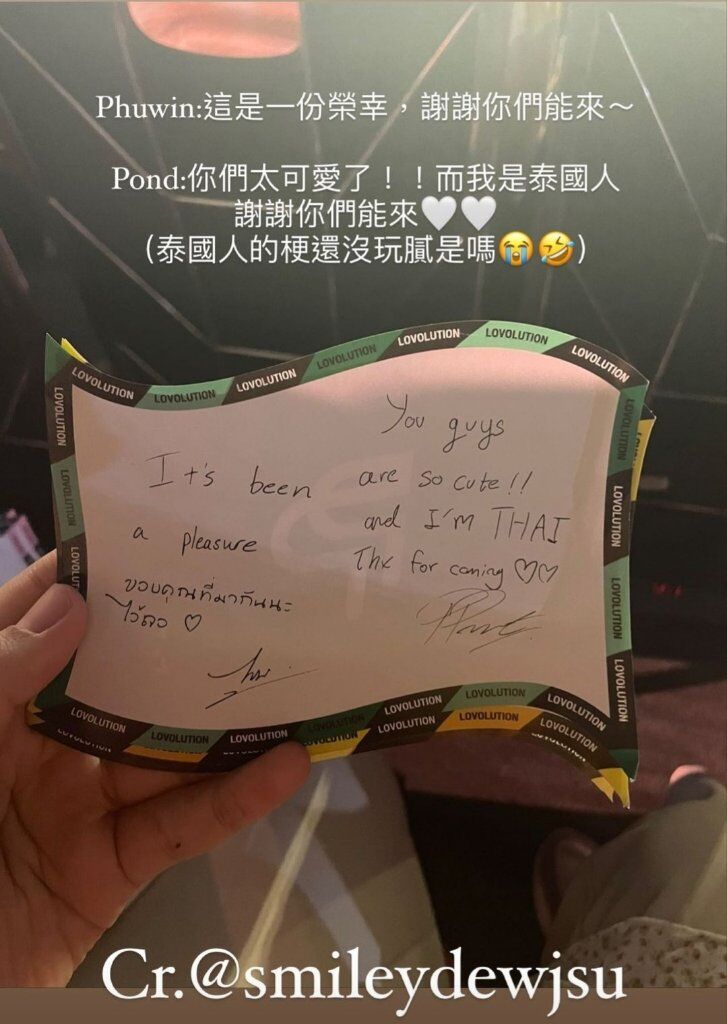 Phuwin:這是一份榮幸，謝謝你們能來～
Pond:你們太可愛了！！而我是泰國人
謝謝你們能來🤍🤍
（泰國人的梗還沒玩膩是嗎😭🤣）
LOVOLUTION LOVOLUTION LOVOLUTION LOVOLUTION LOVOLUTION LOVOLUTION LOVOLUTION
LOVOLUTION
LOVOLUTION
LOVOLUTION
It's been
a pleasure
ขอบคุณที่มากันนะ
ไว้เจอ ♡
You guys
are so cute!!
and I'm THAI
Thx for coming ♡♡
LOVOLUTION
LOVOLUTION
LOVOLUTION
LOVOLUTION
LOVOLUTION LOVOLUTION LOVOLUTION LOVOLUTION LOVOLUTION LOVOLUTION LOVOLUTION
LOVOLUTION LOVOLUTION LOVOLUTION LOVOLUTION
Cr.@smileydewjsu